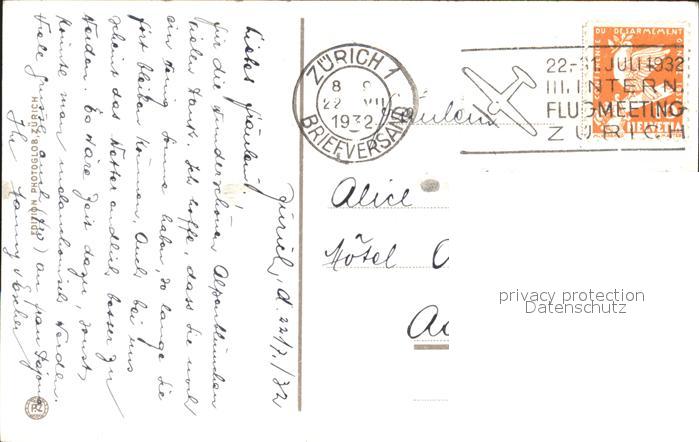 Zürich, d. 22/7./32
Liebes Fräulein!
für die wunderschönen Alpenblümchen
vielen Dank. Ich hoffe, dass Sie noch
ein wenig Sonne haben, so lange Sie
fort bleiben können. Auch bei uns
scheint das Wetter endlich besser zu
werden. Es wäre Zeit dazu, sonst
könnte man melancholisch werden.
Viele Grüsse auch an Frau
Ihre
EDITION PHOTOGLOB ZÜRICH
PZ
ZÜRICH 1
22 VII
1932
BRIEFVERSAND
22.-31. JULI 1932
III. INTERN.
FLUGMEETING
ZÜRICH
DU DÉSARMEMENT
HELVETIA
Fräulein
Alice
Hôtel
privacy protection
Datenschutz